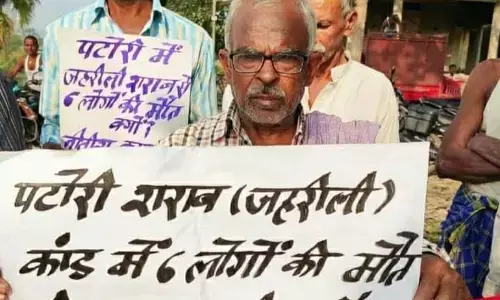 पटोरी में
जहरीली शराब से
6 लोगों की मौत
क्यों?
पटोरी शराब (जहरीली)
कांड में 6 लोगों की मौत